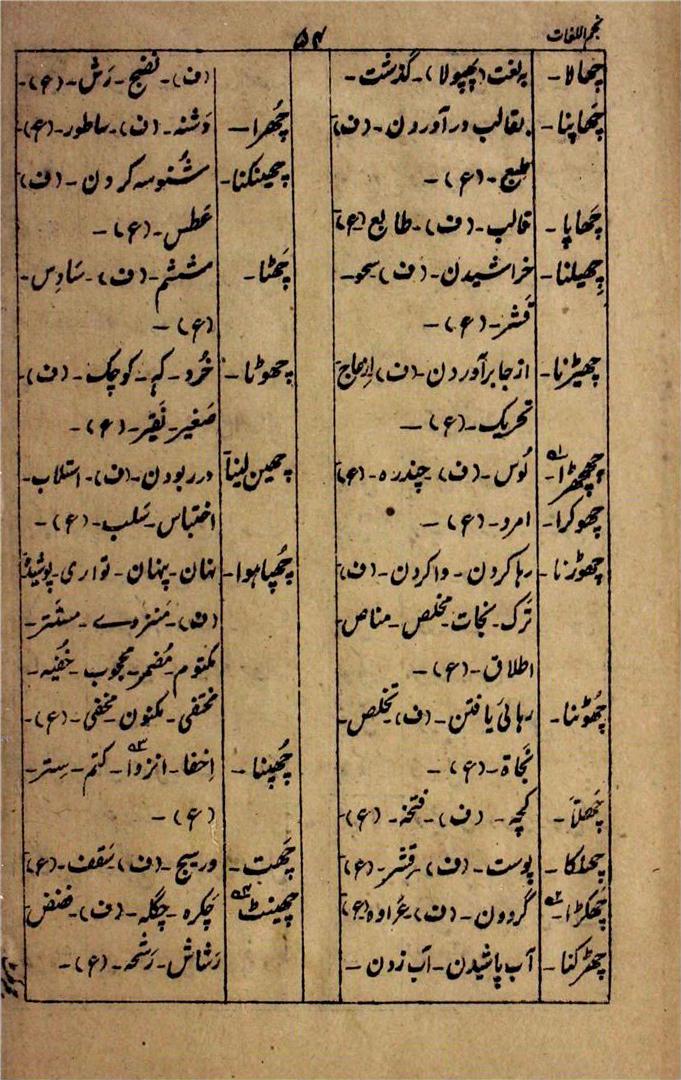 نجم اللغات
۵۴
چھالا - بلغت (پھپولا) - گذشت -
چھاپنا - بقالب در آوردن - (ف)
طبع - (ع) -
چھاپا - قالب - (ف) - طابع (ع)
چھیلنا - خراشیدن - (ف) سحو -
قشر - (ع) -
چھیڑنا - از جا برآوردن - (ف) ازعاج
تحریک - (ع) -
چھچھڑا - لُوس - (ف) چندره - (ع)
چھوکرا - امرد - (ع) -
چھوڑنا - رہا کردن - وا کردن - (ف)
ترک - نجات - مخلص - مناص
اطلاق - (ع) -
چھُوٹنا - رہائی یافتن - (ف) تخلص -
نجاة - (ع) -
چھلّا - کچہ - (ف) - فتخہ - (ع)
چھلکا - پوست - (ف) - قشر - (ع)
چھکڑا - گردون - (ف) - عراده (ع)
چھڑکنا - آب پاشیدن - آب زدن -
(ف) - نضح - رَش - (ع) -
چھُرا - دَشنہ - (ف) - ساطور - (ع) -
چھینکنا - شنوسہ کردن - (ف)
عَطس - (ع) -
چھَٹا - ششم - (ف) - سَادِس -
(ع) -
چھوٹا - خُرد - کِہ - کوچک - (ف) -
صغیر - نَقیر - (ع) -
چھین لینا - در ربودن - (ف) - استلاب -
اختباس - سَلب - (ع) -
چھُپا ہوا - نہان - پنہان - تواری - پوشیدہ
(ف) - منزوے - مستتر -
مکتوم - مُضمر - محجوب - خُفیہ -
مختفی - مکنون - مخفی - (ع) -
چھُپنا - اِخفا - انزوا - کتم - ستر -
(ع) -
چھَت - درسیج - (ف) سَقف - (ع)
چھینٹ - چکرہ - چگلہ - (ف) - فضض
رَشاش - رَشحہ - (ع) -